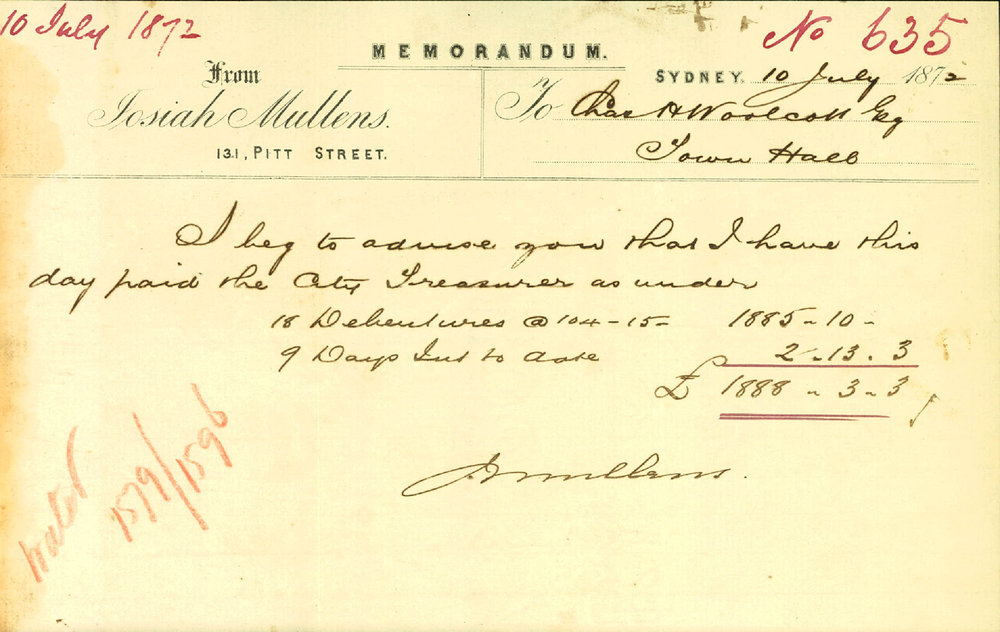 10 July 1872
No 635
MEMORANDUM.
From
Josiah Mullens.
131, PITT STREET.
SYDNEY, 10 July 1872
To Chas H Woolcott Esq
Town Hall
I beg to advise you that I have this
day paid the City Treasurer as under
18 Debentures @ 104-15- 1885-10-
9 Days Int to date 2-13.3
£ 1888-3-3
J Mullens.
Water
1579/1596